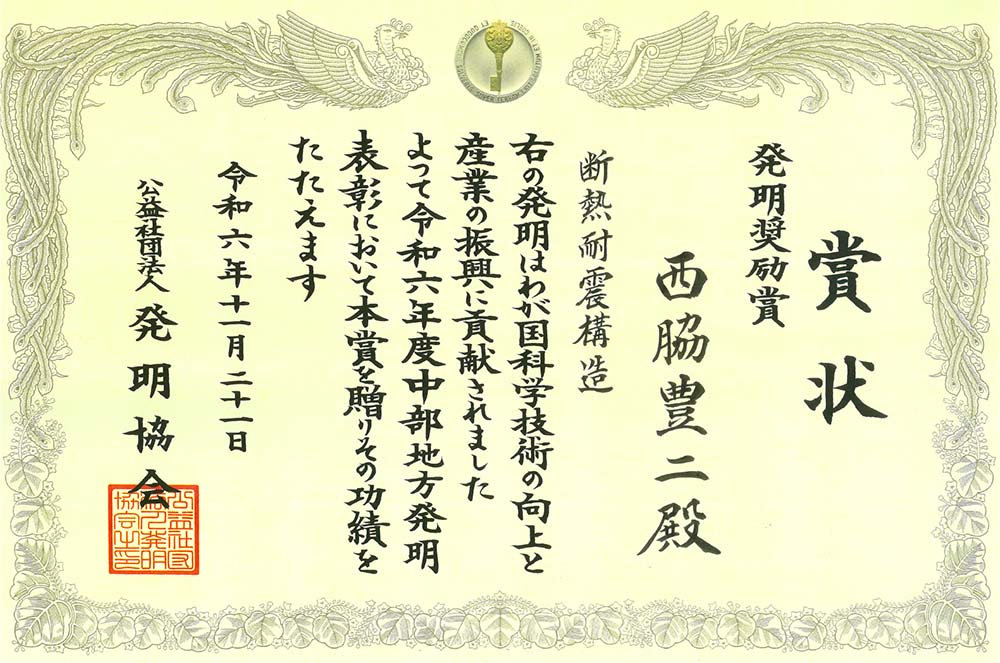 賞状
発明奨励賞
西脇豊二殿
断熱耐震構造
右の発明はわが国科学技術の向上と
産業の振興に貢献されました
よって令和六年度中部地方発明
表彰において本賞を贈りその功績を
たたえます
令和六年十一月二十一日
公益社団法人 発明協会
公益社団
法人発明
協会之印